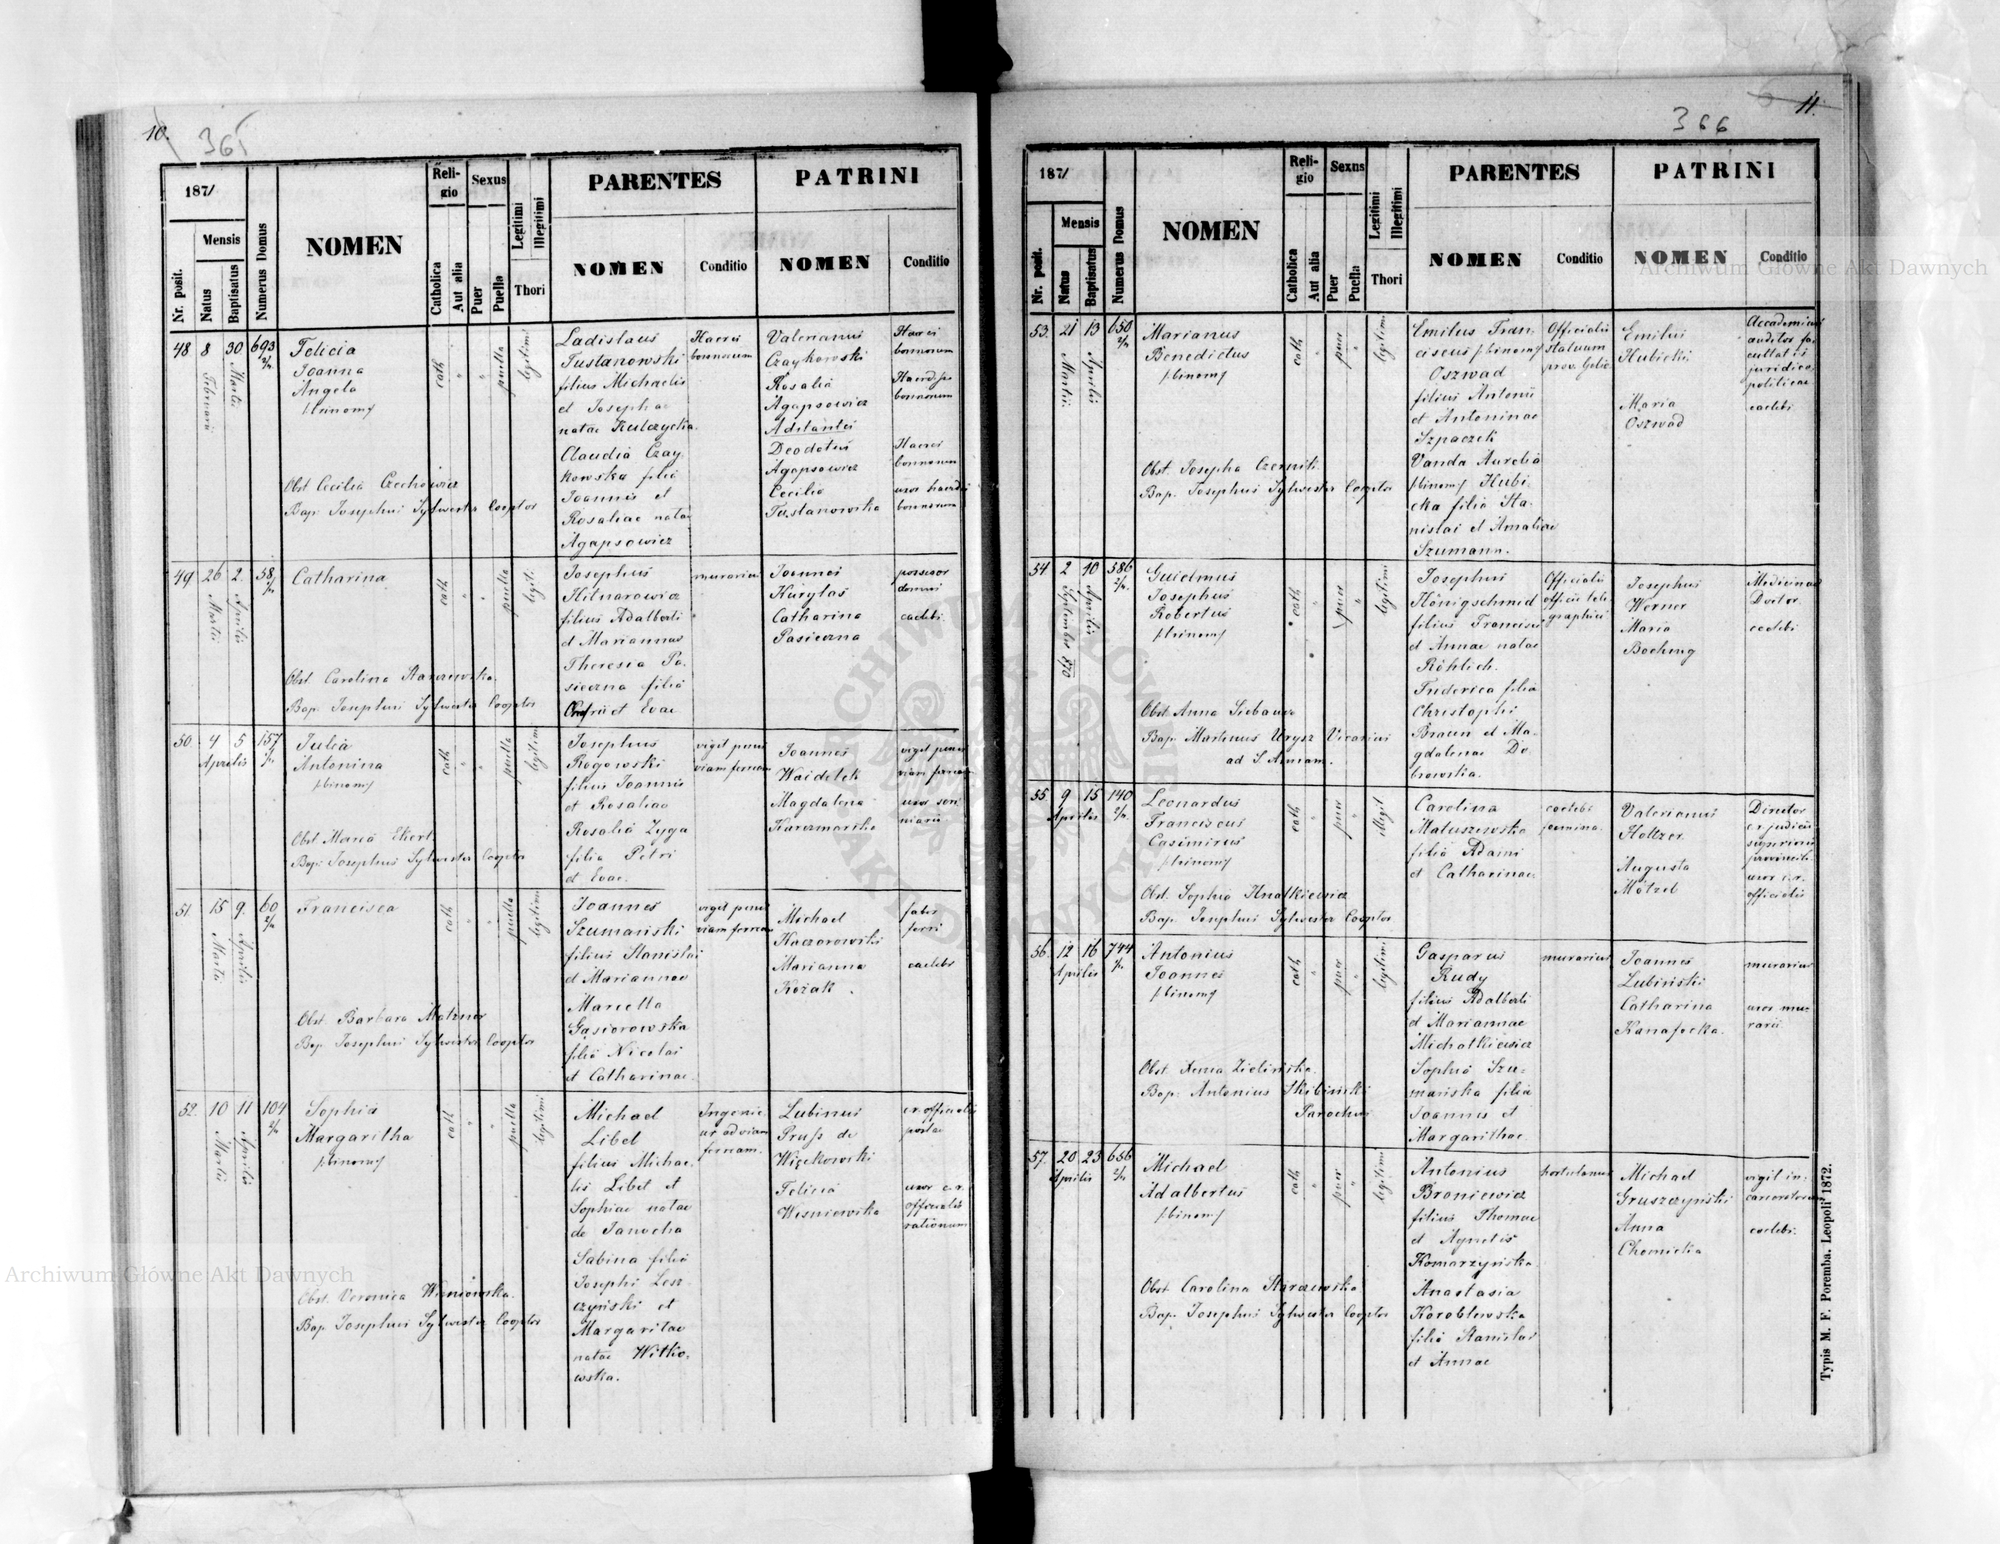 10.
365
187/
Mensis
Nr. posit.
Natus
Baptisatus
Numerus Domus
NOMEN
Religio
Catholica
Aut alia
Sexus
Puer
Puella
Legitimi
Illegitimi
Thori
PARENTES
NOMEN
Conditio
PATRINI
NOMEN
Conditio
48 8 Februarii 30 Martii 693 2/4
Felicia
Joanna
Angela
cath
puella
legitimi
Obst Cecilia Czechowicz
Bap. Josephus Sylwester Cooptor
Ladislaus
Tustanowski
filius Michaelis
et Josephae
natae Kulczycka
Claudia Czay
kowska filia
Joannis et
Rosaliae nata
Agapsowicz
Haeres
bonnorum
Valerianus
Czaykowski
Rosalia
Agapsowicz
Adstantes
Deodatus
Agapsowicz
Cecilia
Tustanowska
Haeres
bonnorum
Haeres
bonnorum
uxor haeredis
bonnorum
49 26 Martii 2. Aprilis 58
Catharina
cath
puella
legiti
Obst Carolina Starzewska
Bap. Josephus Sylwester Cooptor
Josephus
Kilnarowicz
filius Adalberti
et Mariannae
Theresia Pa
sieczna filia
et Evae
murarius
Joannes
Kurylas
Catharina
Pasieczna
possesor
domus
caelebs
50 4 5 Aprilis 157
Julia
Antonina
cath
puella
legitimi
Obst Maria Ekert
Bap. Josephus Sylwester Cooptor
Josephus
Rogowski
filius Joannis
et Rosaliae
Rosalia Zyga
filia Petri
et Evae
vigil penes
viam ferream
Joannes
Waidelek
Magdalena
Karczmarska
vigil penes
viam ferream
51 15 Martii 9. Aprilis 60 2/4
Francisca
cath
puella
legitimi
Obst. Barbara Matzner
Bap. Josephus Sylwester Cooptor
Joannes
Szumański
filius Stanislai
et Mariannae
Mariella
Gąsiorowska
filia Nicolai
et Catharinae
vigil penes
viam ferream
Michael
Kaczorowski
Marianna
Kożak
faber
ferri
caelebs
52 10 Martii 11 Aprilis 104 2/4
Sophia
Margaritha
cath
puella
legitimi
Obst. Veronica Wisniowska
Bap. Josephus Sylwester Cooptor
Michael
Libel
filius Michae
lis Libel et
Sophiae natae
de Janocha
Sabina filia
Josephi Lesz
czyński et
Margaritae
natae Witko
wska.
Ingenie
ur ad viam
ferream
Lubinus
Pruss de
Więckowski
Felicia
Wisniewska
c.r. officialis
postae
uxor c.r.
officialis
rationum
366
11.
187/
Mensis
Nr. posit.
Natus
Baptisatus
Numerus Domus
NOMEN
Religio
Catholica
Aut alia
Sexus
Puer
Puella
Legitimi
Illegitimi
Thori
PARENTES
NOMEN
Conditio
PATRINI
NOMEN
Conditio
53. 21 Martii 13 Aprilis 650 2/4
Marianus
Benedictus
cath
puer
legitimi
Obst. Josepha Czernik
Bap. Josephus Sylwester Cooptor
Emilus Fran
ciscus
Oszwad
filius Antonii
et Antoninae
Szpaczek
Vanda Aurelia
Hubi
cka filia Sta
nislai et Amaliae
Szumann.
Officialis
statuum
prov. Galic
Emilius
Hubicki
Maria
Oszwad
Accademicus
auditor fa
cultatis
juridico
politicae
caelebs
54 2 Septembr 870 10 Aprilis 586 2/4
Josephus
Robertus
cath
puer
legitimi
Obst Anna
Bap. Martinus Urysz Vicarius
ad S. Annam.
Josephus
Königschmid
filius Francisci
et Annae natae
Röhlich.
Friderica filia
Christophi
Braun et Ma
gdalenae Do
browska.
Officialis
officii tele
graphici
Josephus
Werner
Maria
Boehmy
Medicinae
Doctor
caelebs
55 9 15 Aprilis 140 2/4
Leonardus
Franciscus
Casimirus
cath
puer
illegit
Obst. Sophia Knatkiewicz
Bap. Josephus Sylwester Cooptor
Carolina
Matuszewska
filia Adami
et Catharinae
caelebs
femina
Valerianus
Holtzer
Augusta
Mötzel
Director
c.r. judicii
superioris
provincial.
uxor c.r.
officialis
56 12 16 Aprilis 744
Antonius
Joannes
cath
puer
legitimi
Obst. Anna Zielińska
Bap. Antonius Skibiński
Parochus
Gasparus
Rudy
filius Adalberti
et Mariannae
Michatkiewicz
Sophia Szu-
mańska filia
Joannis et
Margarithae
murarius
Joannes
Lubiński
Catharina
Kanafocka.
murarius
uxor mu-
rarii
57. 20 23 Aprilis 656 2/4
Michael
Adalbertus
cath
puer
legitimi
Obst. Carolina Starzewska
Bap. Josephus Sylwester Cooptor
Antonius
Broniewicz
filius Thomae
et Agnetis
Komarzyńska
Anastasia
Koroblewska
filia Stanislai
et Annae
hortulanus
Michael
Gruszczyński
Anna
Chomicka
vigil in-
carceratorum
caelebs
Typis M. F. Poremba. Leopoli 1872.
Archiwum Główne Akt Dawnych
Archiwum Główne Akt Dawnych
ARCHIWUM GŁÓWNE AKT DAWNYCH